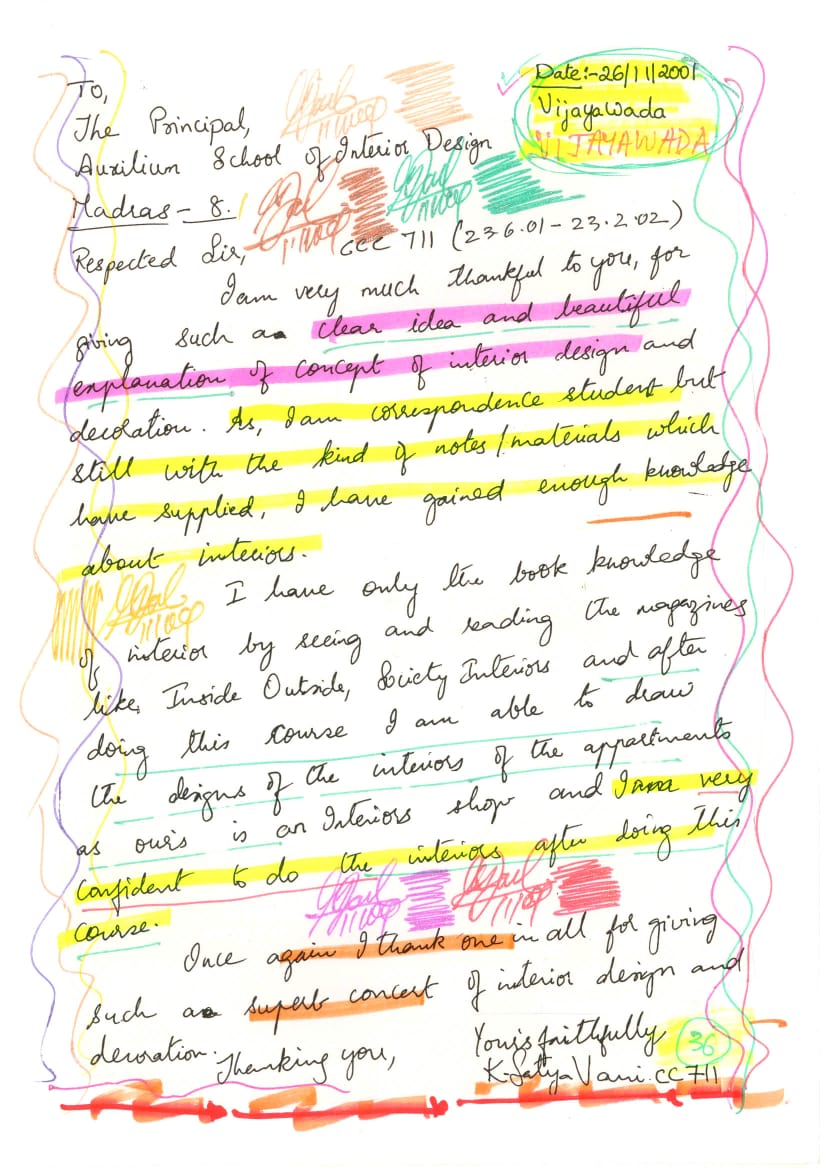 Date:-26/11/2001
Vijayawada
VIJAYAWADA
To,
The Principal,
Auxilium School of Interior Design
Madras - 8.
CCC 711 (23.6.01 - 23.2.02)
Respected Sir,
I am very much thankful to you, for
giving such a clear idea and beautiful
explanation of concept of interior design and
decoration. As, I am correspondence student but
still with the kind of notes/materials which
have supplied, I have gained enough knowledge
about interiors.
I have only the book knowledge
of interior by seeing and reading the magazines
like, Inside Outside, Society Interiors and after
doing this course I am able to draw
the designs of the interiors of the appartments
as our's is an Interiors shop and I am very
confident to do the interiors after doing this
course.
Once again I thank one in all for giving
such a superb concert of interior design and
decoration. Thanking you,
Your's faithfully
K. Satya Vani. CC 711
36